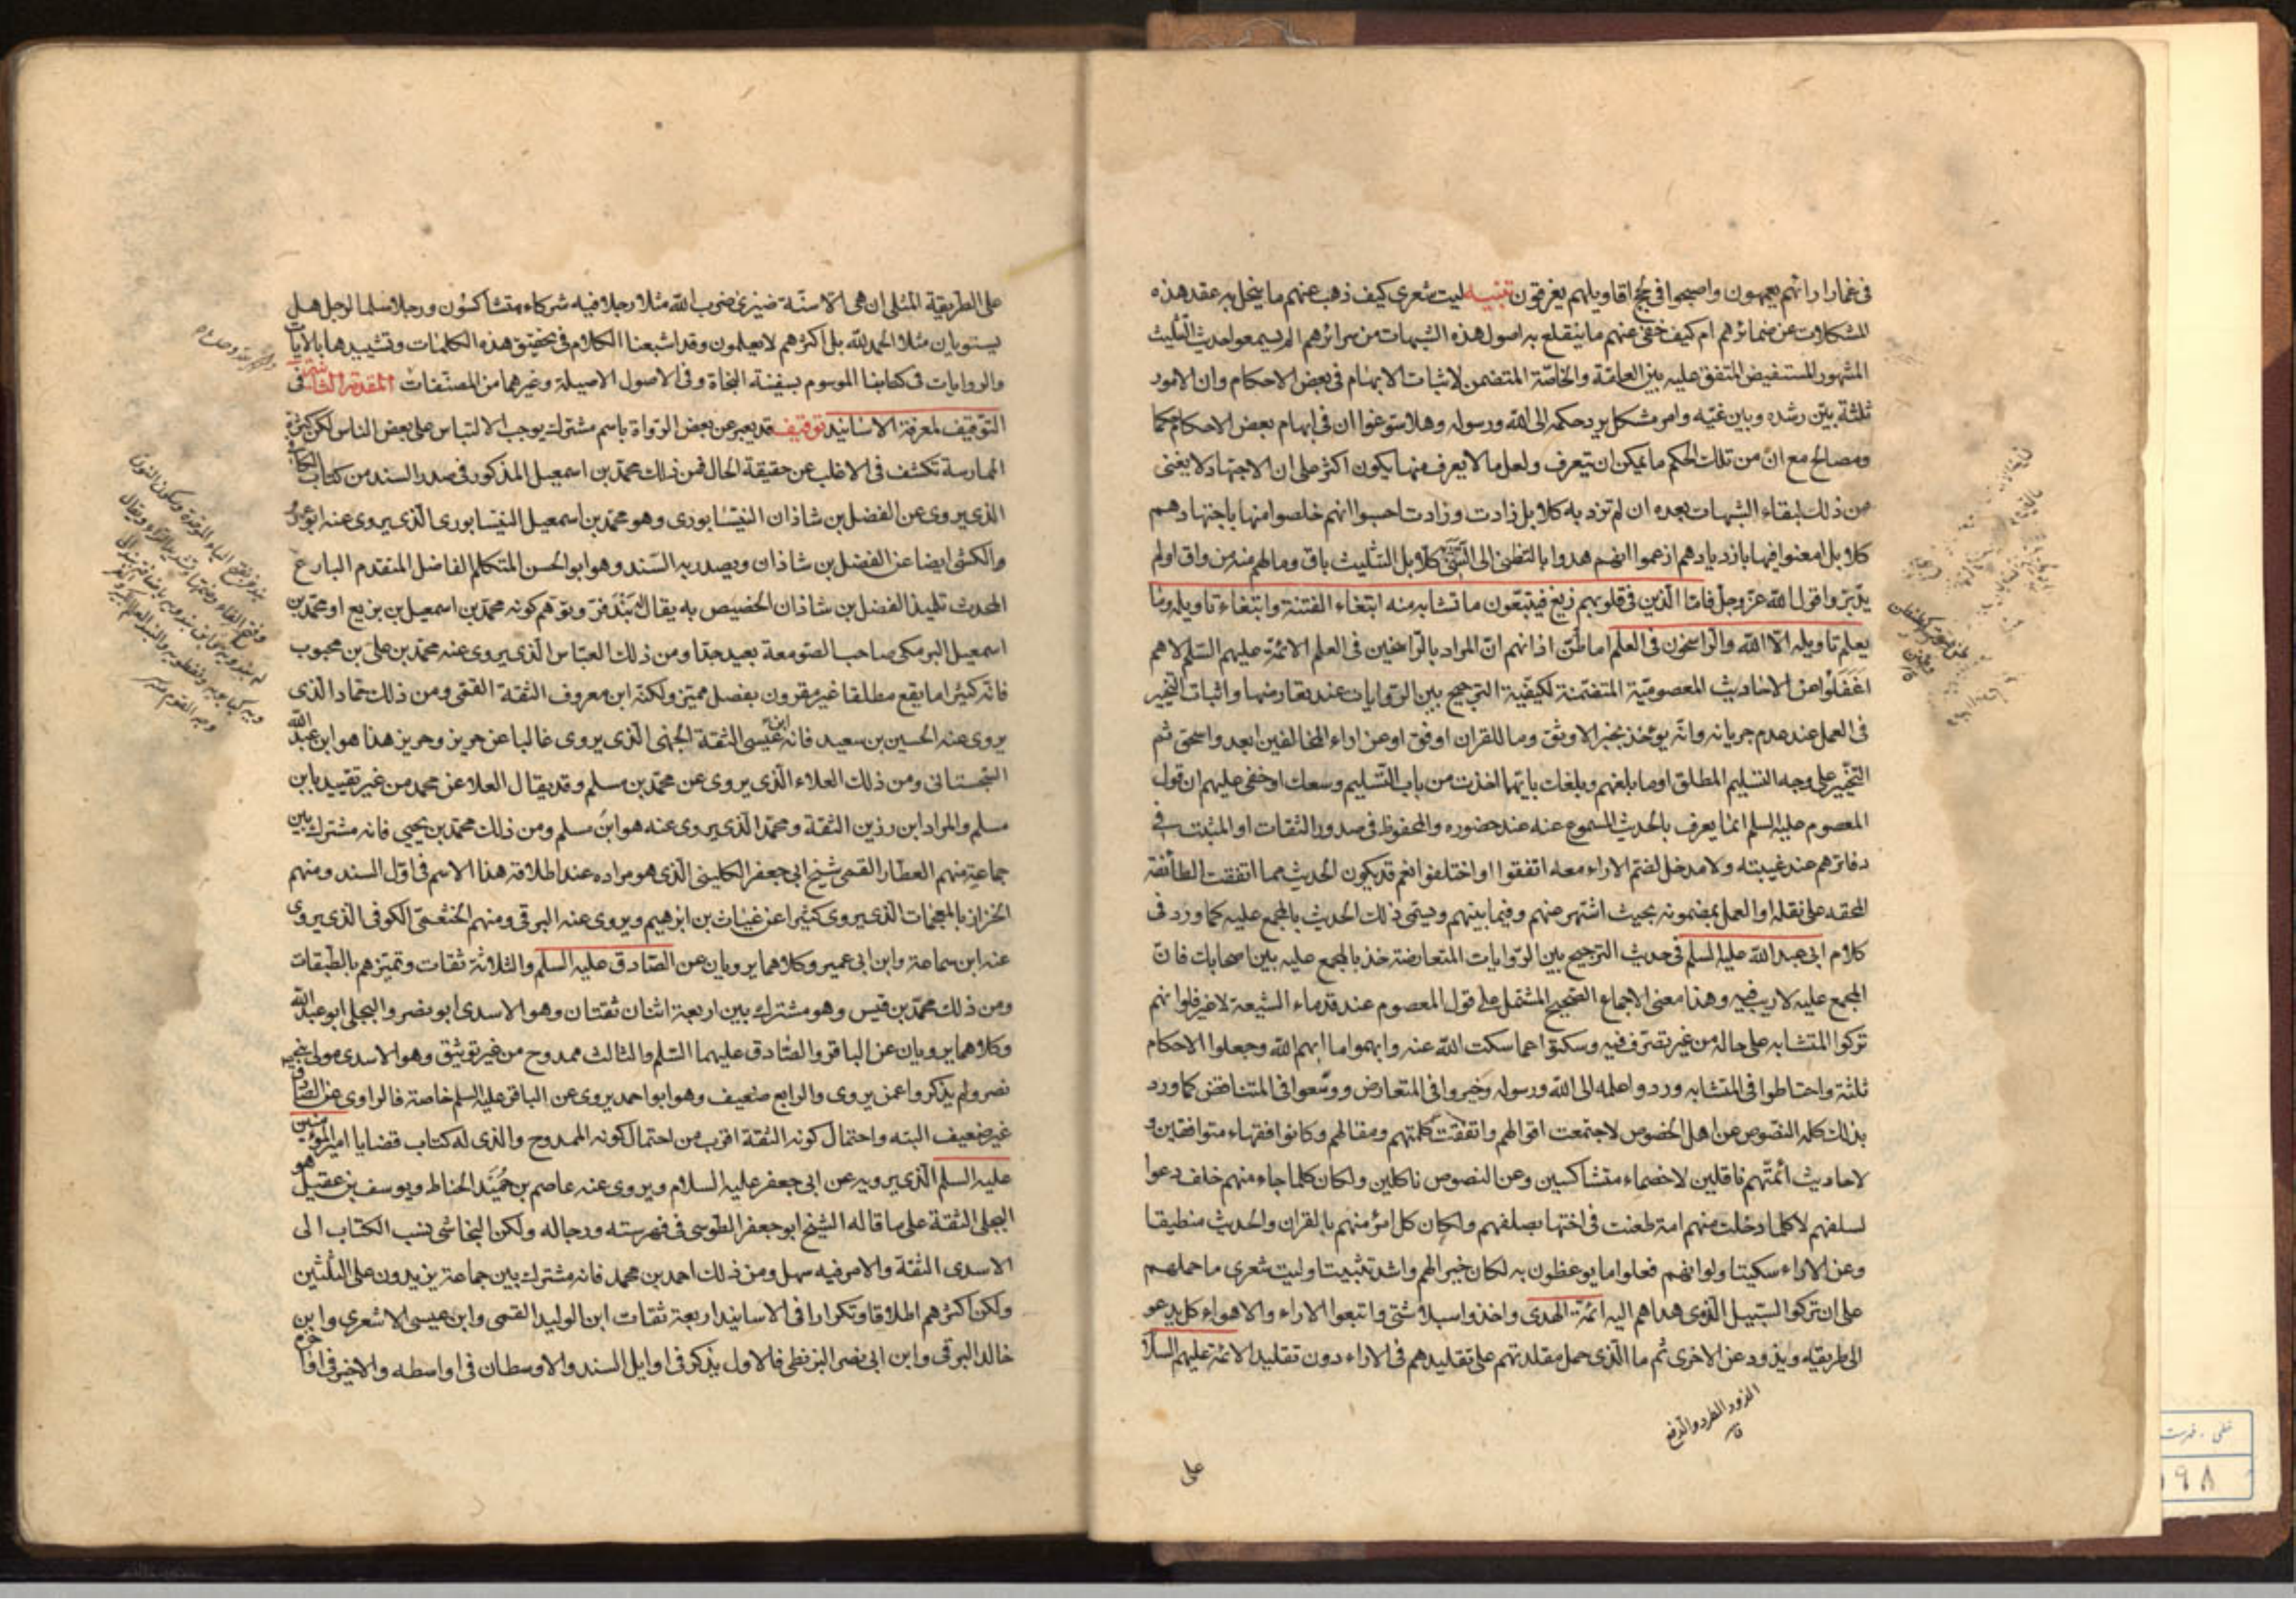 في غمار ارائهم يعمهون واصبحوا في لجج اقاويلهم يغرقون تنبيه ليت شعري كيف ذهب عنهم ما ينحل به عقد هذه
المشكلات عن ضمائرهم ام كيف خفي عنهم ما ينقلع به اصول هذه الشبهات من سرائرهم الم يسمعوا حديث التثليث
المشهور المستفيض المتفق عليه بين العامة والخاصة المتضمن لاثبات الابهام في بعض الاحكام وان الامور
ثلثة بين رشده وبين غيه وامر مشكل يرد حكمه الى الله ورسوله وهلا سوغوا ان في ابهام بعض الاحكام حكما
ومصالح مع ان من تلك الحكم ما يمكن ان يتعرف ولعل ما لا يعرف منها يكون اكثر على ان الاجتهاد لا يغني
من ذلك لبقاء الشبهات بعده ان لم تزد به كلا بل زادت وزادت احسبوا انهم خلصوا منها باجتهادهم
كلا بل امعنوا فيها بازديادهم ازعموا انهم هدوا بالتظني الى التثني كلا بل التثليث باق وما لهم منه من واق اولم
يدبروا قول الله عز وجل فاما الذين في قلوبهم زيغ فيتبعون ما تشابه منه ابتغاء الفتنة وابتغاء تاويله وما
يعلم تاويله الا الله والراسخون في العلم اما طن اذانهم ان المراد بالراسخين في العلم الائمة عليهم السلم لا هم
اغفلوا عن الاحاديث المعصومية المتضمنة لكيفية الترجيح بين الروايات عند تعارضها واثبات التخيير
في العمل عند عدم جريانه وانه يؤخذ بخبر الاوثق وما للقران اوفق او عن اراء المخالفين ابعد واسحق ثم
التخيير على وجه التسليم المطلق اوما بلغهم وبلغك بايهما اخذت من باب التسليم وسعك او خفي عليهم ان قول
المعصوم عليه السلم انما يعرف بالحديث المسموع عنه عند حضوره والمحفوظ في صدور الثقات او المثبت في
دفاترهم عند غيبته ولا مدخل لضم الاراء معه اتفقوا او اختلفوا نعم قد يكون الحديث مما اتفقت الطائفة
المحقة على نقله او العمل بمضمونه بحيث اشتهر عنهم وفيما بينهم ويسمى ذلك الحديث بالمجمع عليه كما ورد في
كلام ابي عبد الله عليه السلم في حديث الترجيح بين الروايات المتعارضة خذ بالمجمع عليه بين اصحابك فان
المجمع عليه لا ريب فيه وهذا معنى الاجماع الصحيح المشتمل على قول المعصوم عند قدماء الشيعة لا غير فلوا نهم
تركوا المتشابه على حاله من غير تصرف فيه وسكتوا عما سكت الله عنه وابهموا ما ابهم الله وجعلوا الاحكام
ثلثة واحتاطوا في المتشابه وردوا علمه الى الله ورسوله وخيروا في المتعارض ووسعوا في المتناقض كما ورد
بذلك كله النصوص عن اهل الخصوص لاجتمعت اقوالهم واتفقت كلمتهم ومقالهم وكانوا فقهاء متوافقين و
لاحاديث أئمتهم ناقلين لا خصماء متشاكسين وعن النصوص ناكلين ولكان كلما جاء منهم خلف دعوا
لسلفهم لا كلما دخلت منهم امة طعنت في اختها بصلفهم ولكان كل امرؤ منهم بالقران والحديث منطيقا
وعن الاراء سكيتا ولوانهم فعلوا ما يوعظون به لكان خيرا لهم واشد تثبيتا وليت شعري ما حملهم
على ان تركوا السبيل الذي هداهم اليه ائمة الهدى واخذوا سبلا شتى واتبعوا الاراء والاهواء كل يدعو
الى طريقه ويذود عن الاخرى ثم ما الذي حمل مقلدتهم على تقليدهم في الاراء دون تقليد الائمة عليهم السلا
الذود الطرد والدفع
على
على الطريقة المثلى ان هي الا سنة ضيزى ضرب الله مثلا رجلا فيه شركاء متشاكسون ورجلا سلما لرجل هل
يستويان مثلا الحمد لله بل اكثرهم لا يعلمون وقد اشبعنا الكلام في تحقيق هذه الكلمات وتشييدها بالايات
والروايات في كتابنا الموسوم بسفينة النجاة وفي الاصول الاصيلة وغيرهما من المصنفات المقدمة الثانية في
التوقيف لمعرفة الاسانيد توقيف قد يعبر عن بعض الرواة باسم مشترك يوجب الالتباس على بعض الناس لكن كثرة
الممارسة تكشف في الاغلب عن حقيقة الحال فمن ذلك محمد بن اسمعيل المذكور في صدر السند من كتاب الكافي
الذي يروي عن الفضل بن شاذان النيسابوري وهو محمد بن اسمعيل النيسابوري الذي يروي عنه ابو عمرو
والكشي ايضا عن الفضل بن شاذان ويصدر به السند وهو ابو الحسن المتكلم الفاضل المتقدم البارع
المحدث تلميذ الفضل بن شاذان الخصيص به يقال له بندفر وتوهم كونه محمد بن اسمعيل بن بزيع او محمد بن
اسمعيل البرمكي صاحب الصومعة بعيد جدا ومن ذلك العباس الذي يروي عنه محمد بن علي بن محبوب
فانه كثيرا ما يقع مطلقا غير مقرون بفصل مميز ولكنه ابن معروف الثقة القمي ومن ذلك حماد الذي
يروي عنه الحسين بن سعيد فانه ابن عيسى الثقة الجهني الذي يروي غالبا عن حريز وحريز هذا هو ابن عبد الله
السجستاني ومن ذلك العلاء الذي يروي عن محمد بن مسلم وقد يقال العلا عن محمد من غير تقييد بابن
مسلم والمراد ابن رزين الثقة ومحمد الذي يروي عنه هو ابن مسلم ومن ذلك محمد بن يحيى فانه مشترك بين
جماعة منهم العطار القمي شيخ ابي جعفر الكليني الذي هو مراده عند اطلاقه هذا الاسم في اول السند ومنهم
الخزاز بالمعجمات الذي يروي كثيرا عن غياث بن ابرهيم ويروي عنه البرقي ومنهم الخثعمي الكوفي الذي يروي
عنه ابن سماعة وابن ابي عمير وكلاهما يرويان عن الصادق عليه السلم والثلاثة ثقات وتميزهم بالطبقات
ومن ذلك محمد بن قيس وهو مشترك بين اربعة اثنان ثقتان وهو الاسدي ابو نصر والبجلي ابو عبد الله
وكلاهما يرويان عن الباقر والصادق عليهما السلم والثالث ممدوح من غير توثيق وهو الاسدي مولى بني
نصر ولم يذكروا عمن يروي والرابع ضعيف وهو ابو احمد يروي عن الباقر عليه السلم خاصة فالراوي عن الصادق
غير ضعيف البته واحتمال كونه الثقة اقرب من احتمال كونه الممدوح والذي له كتاب قضايا امير المؤمنين
عليه السلم الذي يرويه عن ابي جعفر عليه السلام ويروي عنه عاصم بن حميد الحناط ويوسف بن عقيل هو
البجلي الثقة على ما قاله الشيخ ابو جعفر الطوسي في فهرسته ورجاله ولكن النجاشي نسب الكتاب الى
الاسدي الثقة والامر فيه سهل ومن ذلك احمد بن محمد فانه مشترك بين جماعة يزيدون على الثلثين
ولكن اكثرهم اطلاقا وتكرارا في الاسانيد اربعة ثقات ابن الوليد القمي وابن عيسى الاشعري وابن
خالد البرقي وابن ابي نصر البزنطي فالاول يذكر في اوايل السند والاوسطان في اواسطه والاخير في اواخره